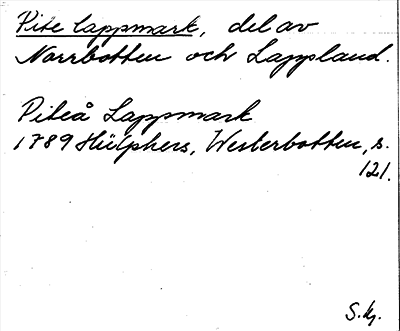 Pite lappmark, del av
Norrbotten och Lappland.
Piteå Lappmark
1789 Hülphers, Westerbotten, s.
121.
S. Kg.